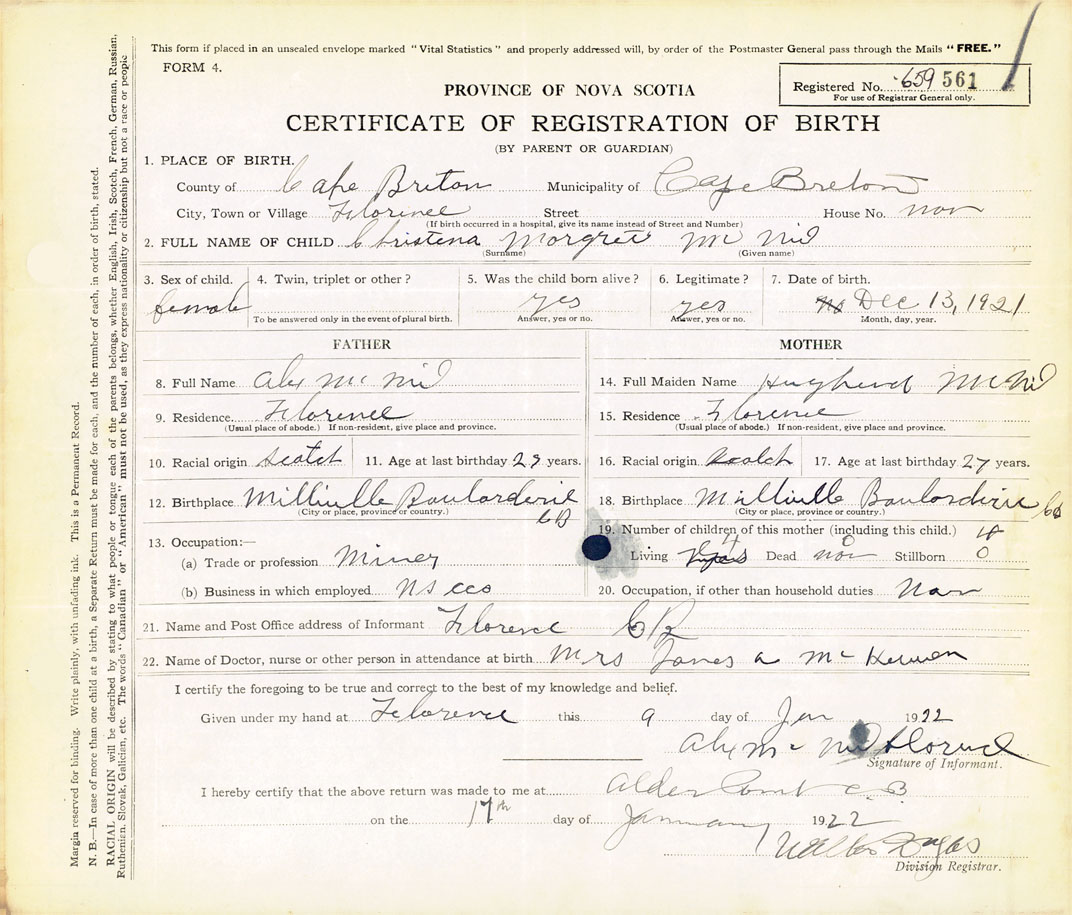 This form if placed in an unsealed envelope marked "Vital Statistics" and properly addressed will, by order of the Postmaster General pass through the Mails "FREE."
FORM 4.
Registered No. 659 561
For use of Registrar General only.
PROVINCE OF NOVA SCOTIA
CERTIFICATE OF REGISTRATION OF BIRTH
(BY PARENT OR GUARDIAN)
1. PLACE OF BIRTH.
County of Cape Briton Municipality of Cape Breton
City, Town or Village Florence Street House No. non
(If birth occurred in a hospital, give its name instead of Street and Number)
2. FULL NAME OF CHILD Christena Morgret Mc Nil
(Surname) (Given name)
3. Sex of child. 4. Twin, triplet or other? 5. Was the child born alive? 6. Legitimate? 7. Date of birth.
female yes yes Dec 13, 1921
To be answered only in the event of plural birth. Answer, yes or no. Answer, yes or no. Month, day, year.
FATHER MOTHER
8. Full Name Alex Mc Nil 14. Full Maiden Name McNil
9. Residence Florence 15. Residence Florence
(Usual place of abode.) If non-resident, give place and province. (Usual place of abode.) If non-resident, give place and province.
10. Racial origin Scotch 11. Age at last birthday 29 years. 16. Racial origin Scotch 17. Age at last birthday 27 years.
12. Birthplace Millville Boularderie 18. Birthplace Millville Boularderie CB
(City or place, province or country.) (City or place, province or country.)
CB
19. Number of children of this mother (including this child.) 4
13. Occupation:—
(a) Trade or profession Miner Living 4 Dead non 0 Stillborn 0
(b) Business in which employed N S 20. Occupation, if other than household duties Non
21. Name and Post Office address of Informant Florence CB
22. Name of Doctor, nurse or other person in attendance at birth Mrs James a Mc
I certify the foregoing to be true and correct to the best of my knowledge and belief.
Given under my hand at Florence this 9 day of Jan 1922
Alex Mc Nil Florence
Signature of Informant.
I hereby certify that the above return was made to me at Alder Point C. B
on the 17th day of January 1922
Walter
Division Registrar.
Margin reserved for binding. Write plainly, with unfading ink. This is a Permanent Record.
N. B.—In case of more than one child at a birth, a Separate Return must be made for each, and the number of each, in order of birth, stated.
RACIAL ORIGIN will be described by stating to what people or tongue each of the parents belongs, whether English, Irish, Scotch, French, German, Russian,
Ruthenian, Slovak, Galician, etc. The words "Canadian" or "American" must not be used, as they express nationality or citizenship but not a race or people